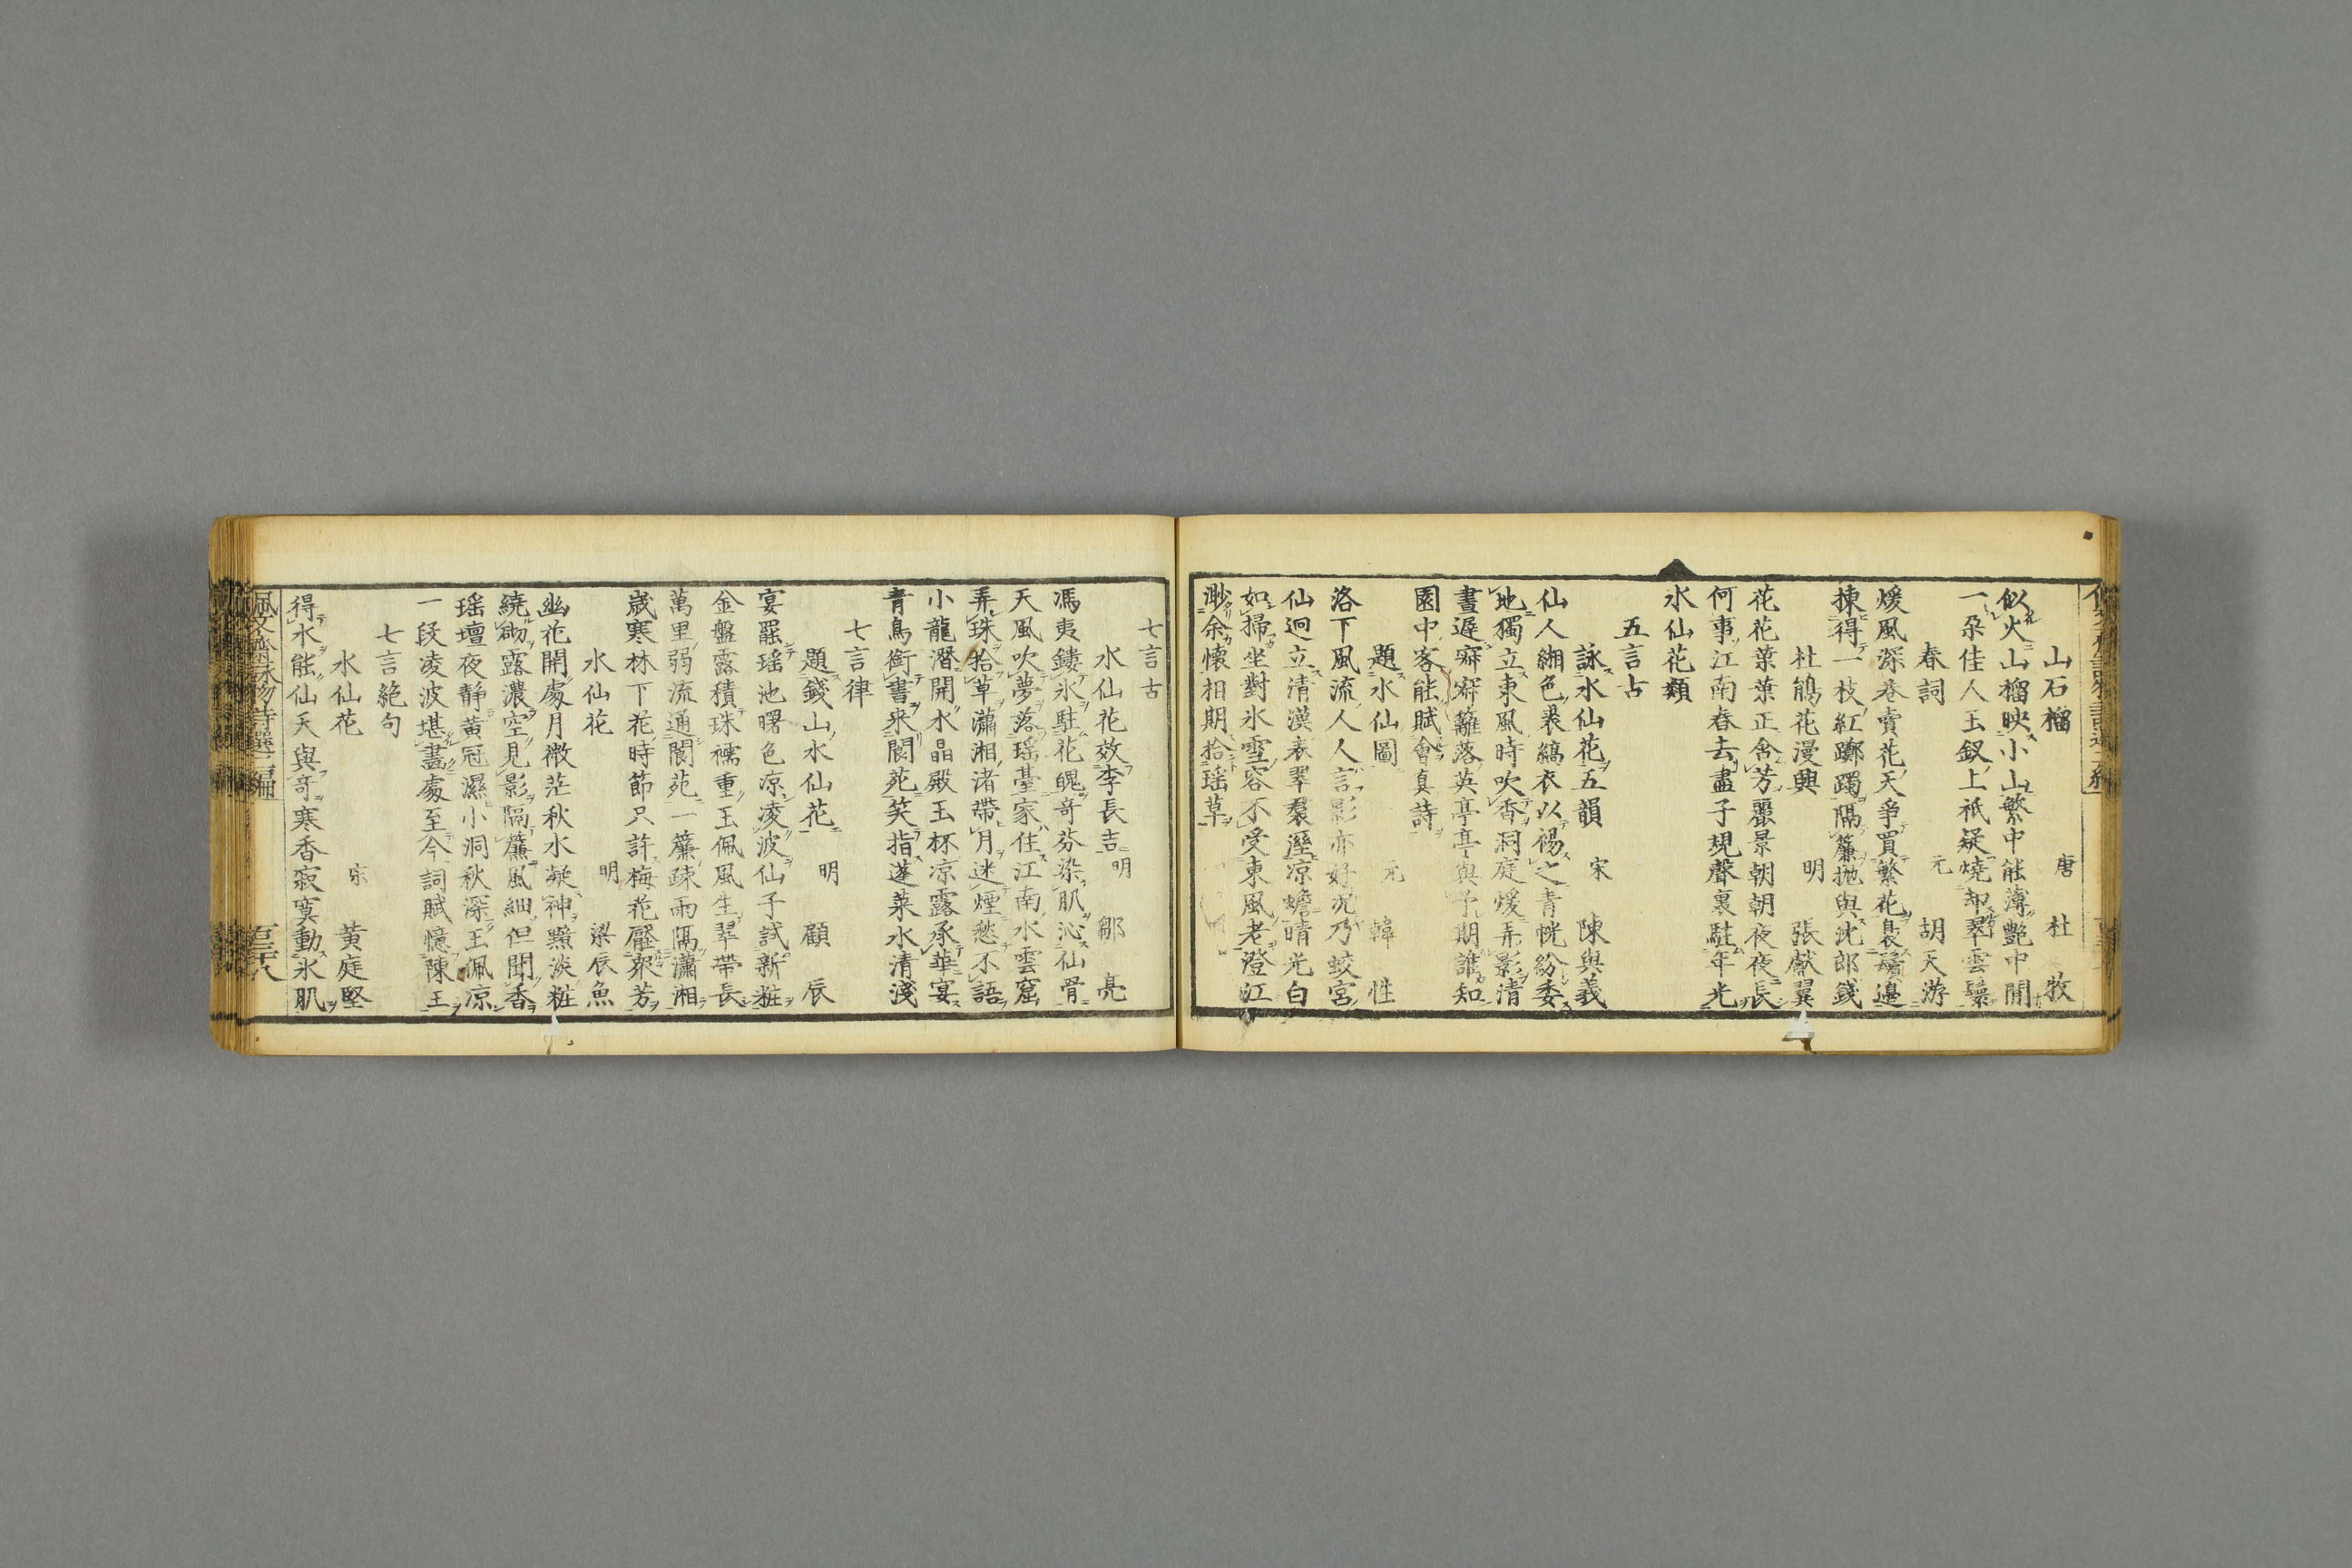 山石榴 唐 杜牧
似火山榴映小山繁中能薄艶中閒
一朶佳人玉釵上祇疑燒却翠雲鬟
春詞 元 胡天游
煖風深巷賣花天爭買繁花裊鬢邊
揀得一枝紅躑躅隔簾抛與沈郎錢
杜鵑花漫興 明 張獻翼
花花葉葉正含芳麗景朝朝夜夜長
何事江南春去盡子規聲裏駐年光
水仙花類
五言古
詠水仙花五韻 宋 陳與義
仙人緗色裘縞衣以裼之青帨紛委
地獨立東風時吹香洞庭煖弄影清
晝遲寂寂籬落英亭亭與予期誰知
園中客能賦會真詩
題水仙圖 元 韓性
洛下風流人人言影亦好况乃蛟宮
仙迥立清漢表翠裠溼凉蟾晴光白
如掃坐對氷雪容不受東風老澄江
渺余懷相期拾瑶草
七言古
水仙花效李長吉 明 鄒亮
馮夷鏤氷駐花魄奇芬染肌沁仙骨
天風吹夢落瑶臺家住江南水雲窟
弄珠拾草瀟湘渚帶月迷煙愁不語
小龍潛開水晶殿玉杯凉露承華宴
青鳥銜書來閬苑笑指蓬萊水清淺
七言律
題錢山水仙花 明 顧辰
宴罷瑶池曙色凉凌波仙子試新粧
金盤露積珠襦重玉佩風生翠帶長
萬里弱流通閬苑一簾疎雨隔瀟湘
歳寒林下花時節只許梅花壓衆芳
水仙花 明 梁辰魚
幽花開處月微茫秋水凝神黯淡粧
繞砌露濃空見影隔簾風細但聞香
瑶壇夜靜黄冠濕小洞秋深玉佩凉
一段凌波堪畫處至今詞賦憶陳王
七言絶句
水仙花 宋 黄庭堅
得水能仙天與奇寒香寂寞動氷肌
佩文齋詠物詩選二編 百三十八